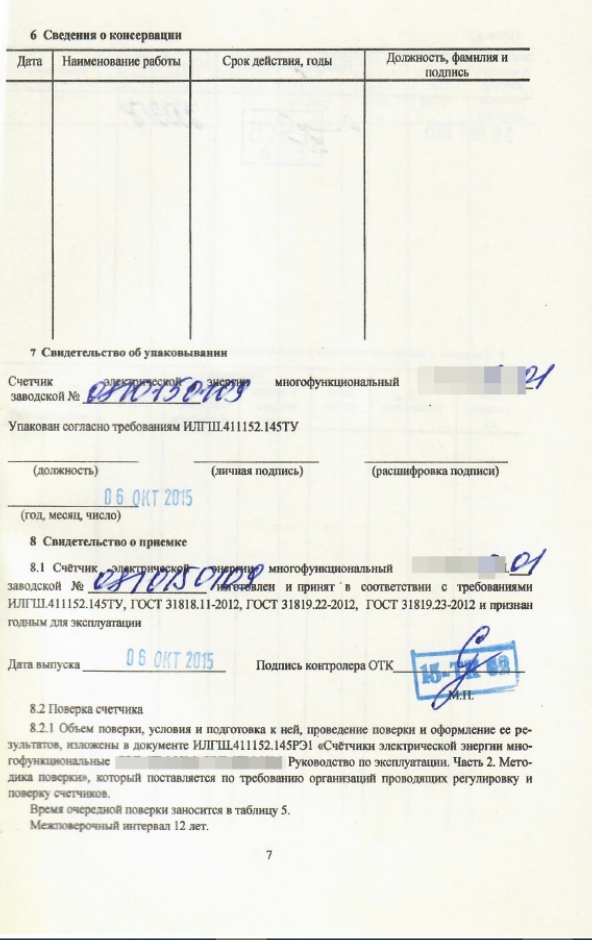 6 Сведения о консервации
Дата Наименование работы Срок действия, годы Должность, фамилия и
подпись
7 Свидетельство об упаковывании
Счетчик электрической энергии многофункциональный 01
заводской № 0810150109
Упакован согласно требованиям ИЛГШ.411152.145ТУ
(должность) (личная подпись) (расшифровка подписи)
06 ОКТ 2015
(год, месяц, число)
8 Свидетельство о приемке
8.1 Счётчик электрической энергии многофункциональный 01
заводской № 0810150109 изготовлен и принят в соответствии с требованиями
ИЛГШ.411152.145ТУ, ГОСТ 31818.11-2012, ГОСТ 31819.22-2012, ГОСТ 31819.23-2012 и признан
годным для эксплуатации
Дата выпуска 06 ОКТ 2015 Подпись контролера ОТК
М.П.
8.2 Поверка счетчика
8.2.1 Объем поверки, условия и подготовка к ней, проведение поверки и оформление ее ре-
зультатов, изложены в документе ИЛГШ.411152.145РЭ1 «Счётчики электрической энергии мно-
гофункциональные Руководство по эксплуатации. Часть 2. Мето-
дика поверки», который поставляется по требованию организаций проводящих регулировку и
поверку счетчиков.
Время очередной поверки заносится в таблицу 5.
Межповерочный интервал 12 лет.
7